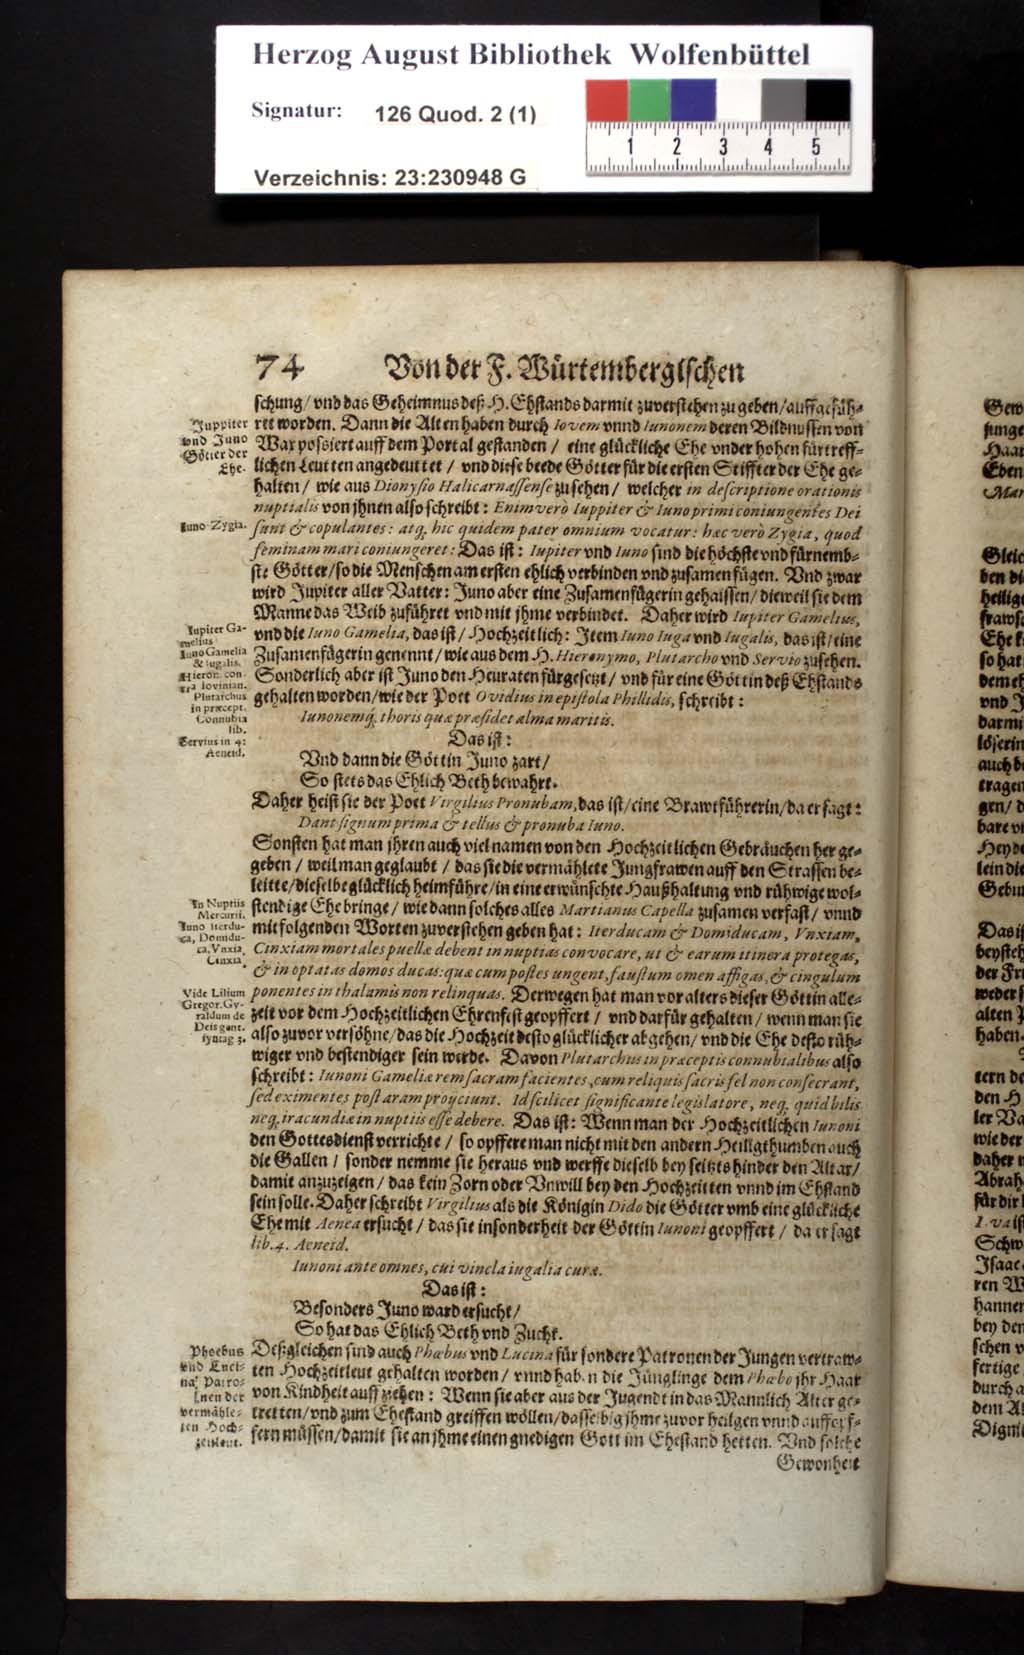 Herzog August Bibliothek Wolfenbüttel
Signatur: 126 Quod. 2 (1)
1 2 3 4 5
Verzeichnis: 23:230948 G
74 Von der F. Würtembergischen
schung/ vnd das Geheimnus deß H. Ehstands darmit zuverstehen zu geben/ auffgefüh-
ret worden. Dann die Alten haben durch Iovem vnnd Iunonem deren Bildnussen von
Wax possiert auff dem Portal gestanden / eine glückliche Ehe vnder hohen fürtreff-
lichen Leutten angedeuttet / vnd diese beede Götter für die ersten Stiffter der Ehe ge-
halten / wie aus Dionysio Halicarnassense zusehen / welcher in descriptione orationis
nuptialis von jhnen also schreibt: Enimverò Iuppiter & Iuno primi coniungentes Dei
sunt & copulantes: atq, hic quidem pater omnium vocatur: hæc verò Zygia, quod
feminam mari coniungeret: Das ist: Iupiter vnd Iuno sind die höchste vnd fürnemb-
ste Götter/ so die Menschen am ersten ehlich verbinden vnd zusamen fügen. Vnd zwar
wird Jupiter aller Vatter: Juno aber eine Zusamenfügerin gehaissen/ dieweil sie dem
Manne das Weib zuführet vnd mit jhme verbindet. Daher wird Iupiter Gamelius,
vnd die Iuno Gamelia, das ist/ Hochzeitlich: Item Iuno Iuga vnd Iugalis, das ist/ eine
Zusamenfügerin genennt/ wie aus dem H. Hieronymo, Plutarcho vnd Servio zusehen.
Sonderlich aber ist Juno den Heuraten fürgesetzt/ vnd für eine Göttin deß Ehstands
gehalten worden/ wie der Poet Ovidius in epistola Phillidis, schreibt:
Iunonemq, thoris quæ præsidet alma maritis.
Das ist:
Vnd dann die Göttin Juno zart/
So stets das Ehlich Beth bewahrt.
Daher heist sie der Poet Virgilius Pronubam, das ist/ eine Brawtführerin/ da er sagt:
Dant signum prima & tellus & pronuba Iuno.
Sonsten hat man jhren auch viel namen von den Hochzeitlichen Gebräuchen her ge-
geben / weil man geglaubt / das sie die vermählete Jungfrawen auff den Strassen be-
leitte/ dieselbe glücklich heimführe/ in eine erwünschte Haußhaltung vnd rühwige wol-
stendige Ehe bringe / wie dann solches alles Martianus Capella zusamen verfast / vnnd
mit folgenden Worten zuverstehen geben hat: Iterducam & Domiducam, Vnxiam,
Cinxiam mortales puellæ debent in nuptias convocare, ut & earum itinera protegas,
& in optatas domos ducas: quæ cum postes ungent, faustum omen affigas, & cingulum
ponentes in thalamis non relinquas. Derwegen hat man vor alters dieser Göttin alle-
zeit vor dem Hochzeitlichen Ehrenfest geopffert / vnd darfür gehalten / wenn man sie
also zuvor versöhne/ das die Hochzeit desto glücklicher abgehen/ vnd die Ehe desto rüh-
wiger vnd bestendiger sein werde. Davon Plutarchus in præceptis connubialibus also
schreibt: Iunoni Gameliæ rem sacram facientes, cum reliquis sacris fel non consecrant,
sed eximentes post aram proyciunt. Id scilicet significante legislatore, neq, quid bilis
neq, iracundiæ in nuptiis esse debere. Das ist: Wenn man der Hochzeitlichen Iunoni
den Gottesdienst verrichte / so opffere man nicht mit den andern Heiligthumben auch
die Gallen / sonder nemme sie heraus vnd werffe dieselb bey seits hinder den Altar/
damit anzuzeigen / das kein Zorn oder Vnwill bey den Hochzeitten vnnd im Ehstand
sein solle. Daher schreibt Virgilius als die Königin Dido die Götter vmb eine glückliche
Ehe mit Aenea ersucht / das sie insonderheit der Göttin Iunoni geopffert / da er sagt
lib. 4. Aeneid.
Iunoni ante omnes, cui vincla iugalia curæ.
Das ist:
Besonders Juno ward ersucht/
So hat das Ehlich Beth vnd Zucht.
Deßgleichen sind auch Phœbus vnd Lucina für sondere Patronen der Jungen vertraw-
ten Hochzeitleut gehalten worden / vnnd haben die Jünglinge dem Phœbo jhr Haar
von Kindheit auff ziehen: Wenn sie aber aus der Jugendt in das Mannlich Alter ge-
tretten/ vnd zum Ehestand greiffen wöllen/ dasselbig jhme zuvor heilgen vnnd auffopf-
fern müssen/ damit sie an jhme einen gnedigen Gott im Ehestand hetten. Vnd solche
Gewonheit
Juppiter
vnd Juno
Götter der
Ehe.
Iuno Zygia.
Iupiter Ga-
melius
Iuno Gamelia
& iugalis.
Hieron. con-
tra Iovinian.
Plutarchus
in præcept.
Connubia
lib.
Servius in 4:
Aeneid.
In Nuptiis
Mercurii.
Juno iterdu-
ca, Domidu-
ca, Vnxia,
Cinxia.
Vide Lilium
Gregor. Gy-
raldum de
Deis gent.
syntag 3.
Phoebus
vnd Luci-
na Patro-
nen der
vermähle-
ten Hoch-
zeitleut.